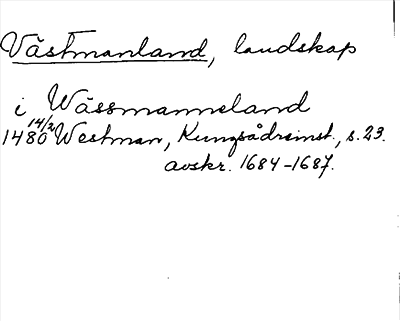 Västmanland, landskap
i Wässmanneland
14/2
1480 Westman, Kungsådreinst., s. 23.
avskr. 1684-1687.